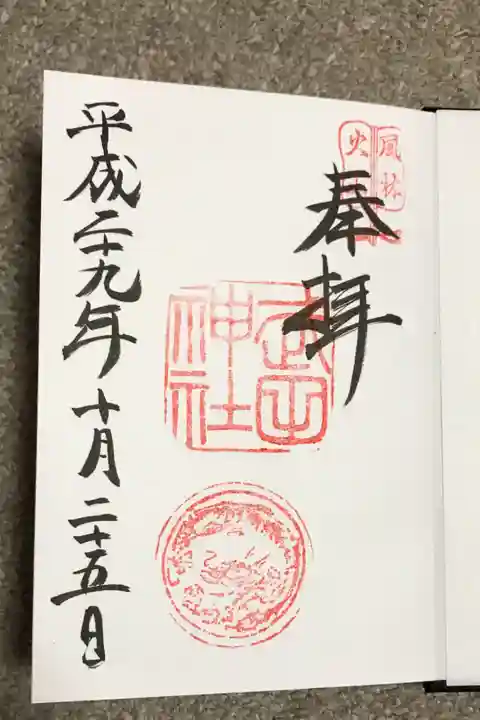 風林
火
奉拝
武田
神社
平成二十九年十月二十五日